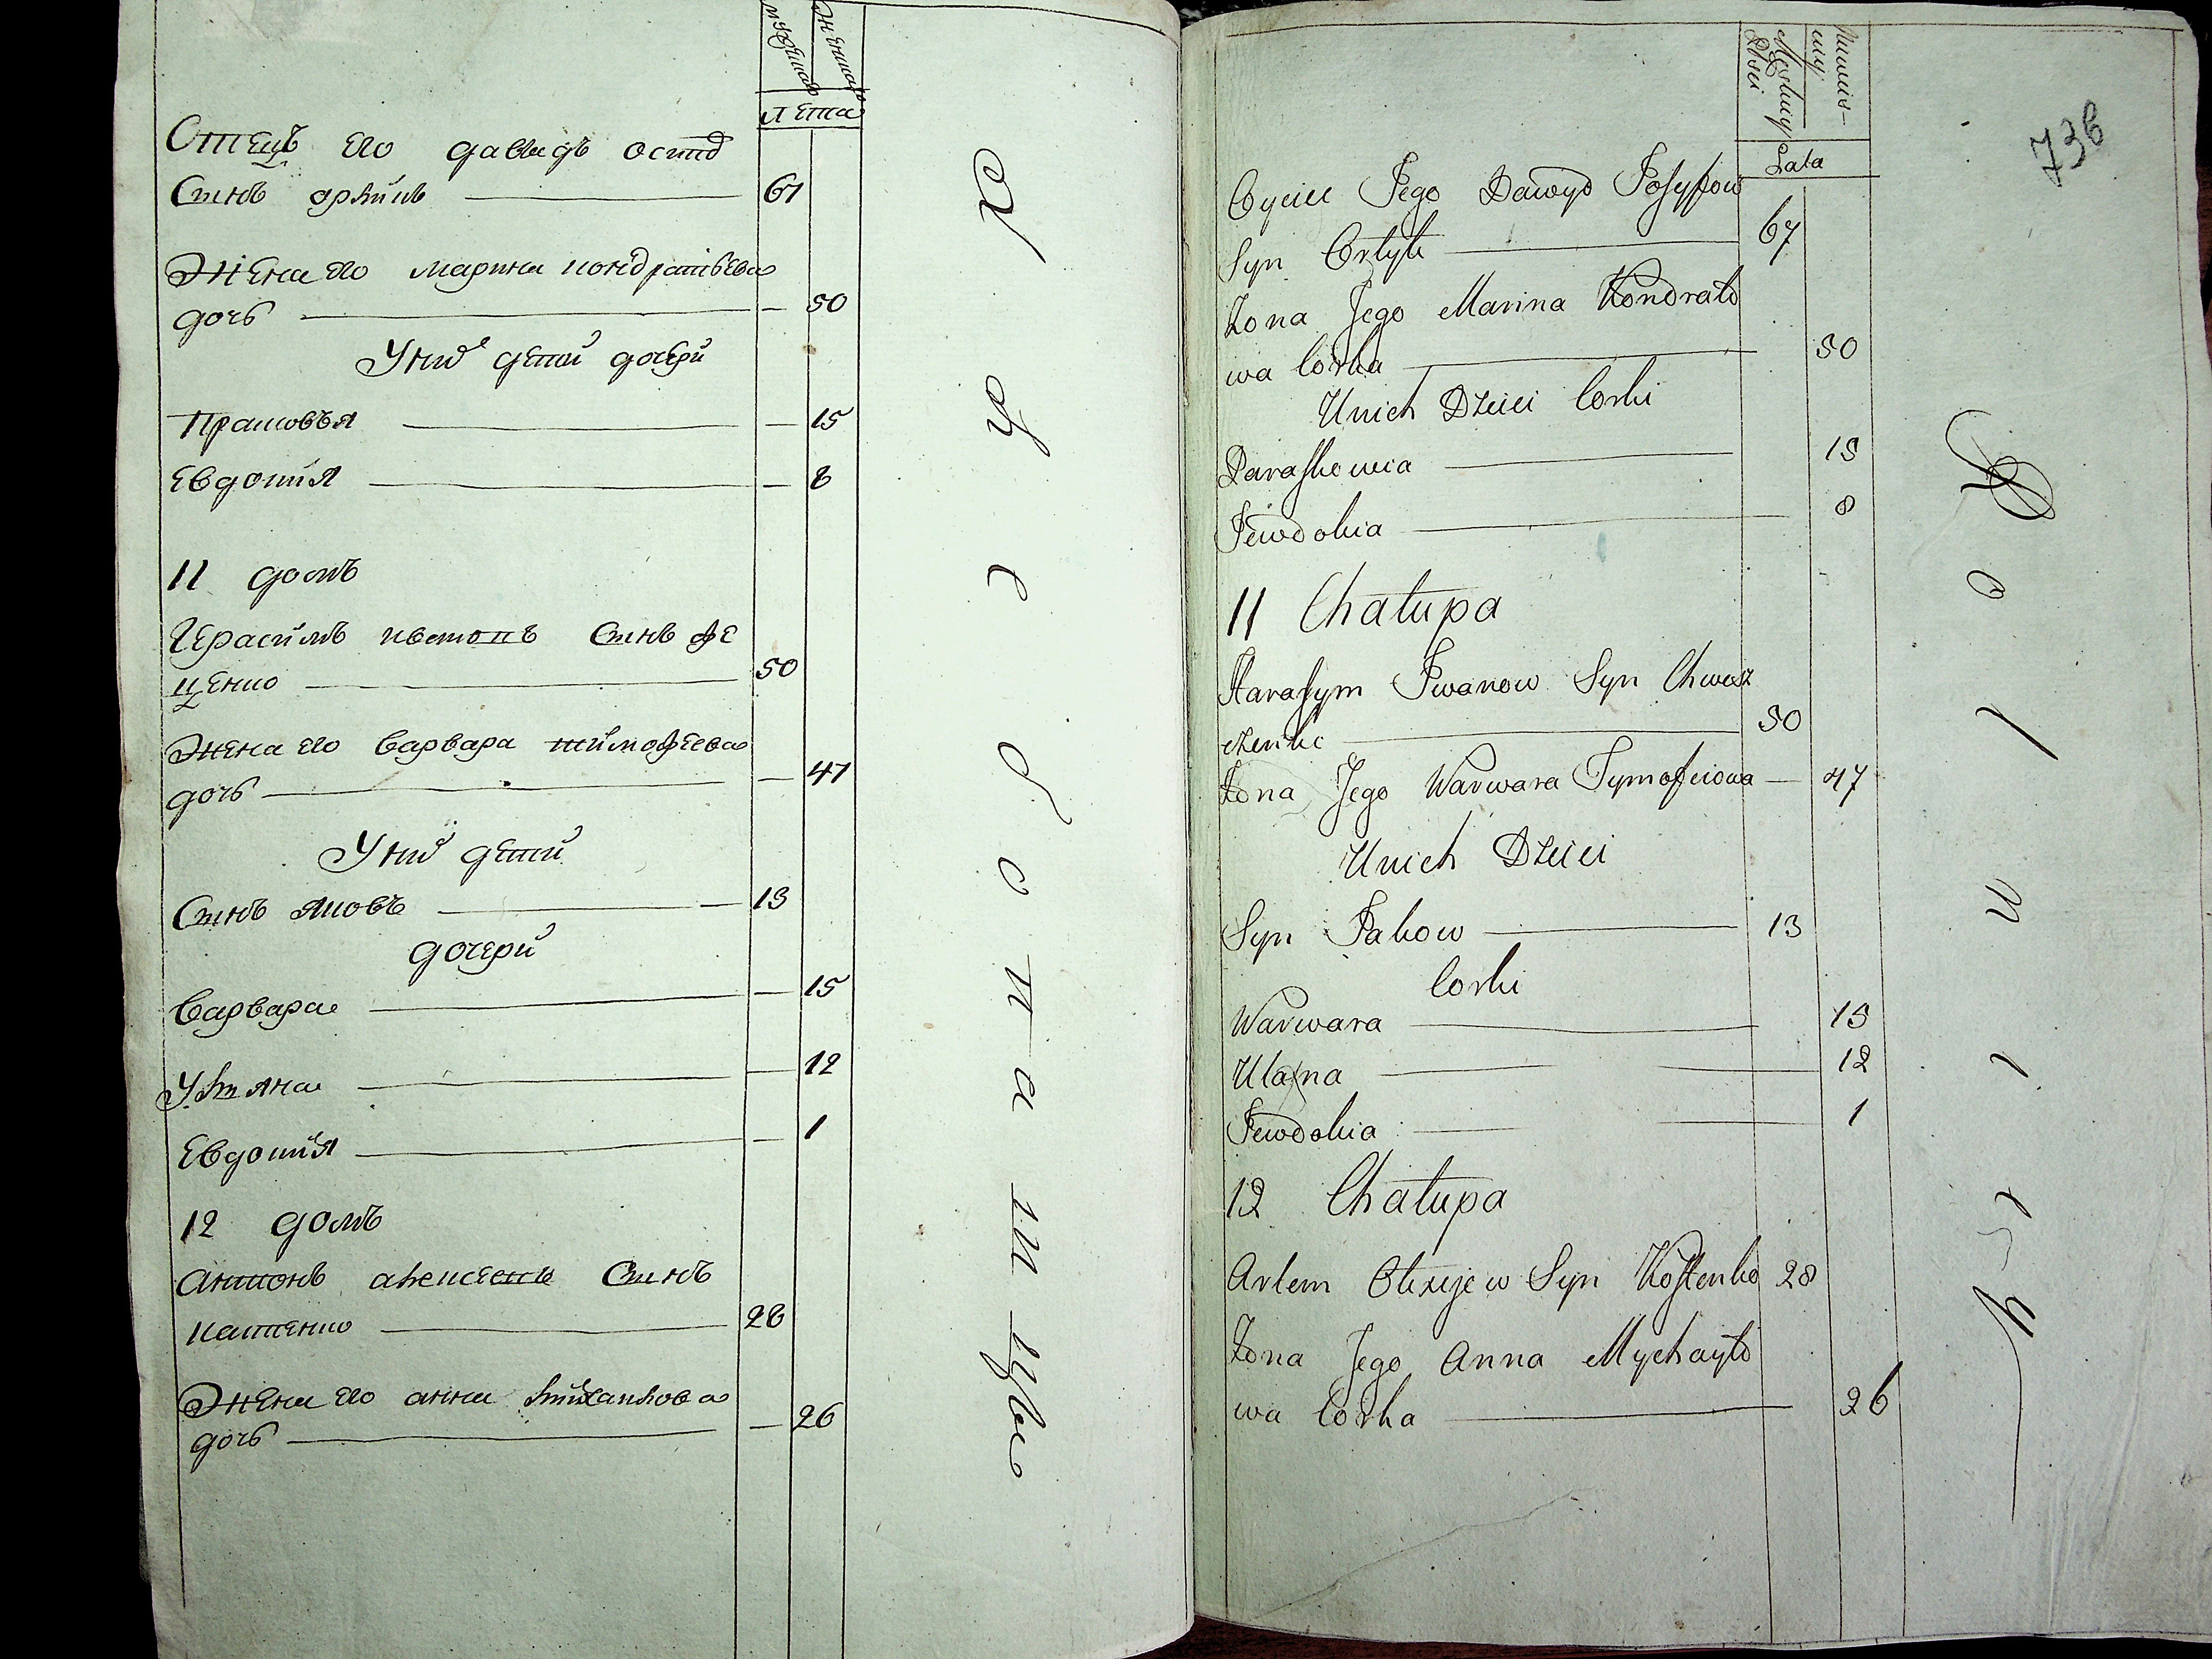 мужеска
женска
лета
Отецъ его давидъ осипо
Синъ орлик 67
Жена его марина кондратьева
дочь — 50
У них дети дочери
Прасковья — 15
Евдокия — 8
11 домъ
Герасимъ ивановъ Синъ фе
щенко 50
Жена его варвара тимофеева
дочь — 47
У них дети
Синъ яковъ — 13
дочери
варвара — 15
Ульяна — 12
Евдокия — 1
12 домъ
антонъ алексеевъ Синъ
костенко 28
Жена его анна михаилова
дочь — 26
73в
Meskiey
Płci
Lata
Oyciec Jego Dawyd Josyfow
Syn Orlyk 67
Żona Jego Marina Kondrato
wa Corka 50
Unich Dzieci Corki
Paraskewia 15
Jewdokia 8
11 Chałupa
Harasym Iwanow Syn Chwesz
czenko 50
Żona Jego Warwara Tymofeiowa — 47
Unich Dzieci
Syn Jakow 13
Corki
Warwara 15
Ulana 12
Jewdokia 1
12 Chałupa
Artem Olexijew Syn Kostenko 28
Żona Jego Anna Mychayło
wa Corka 26